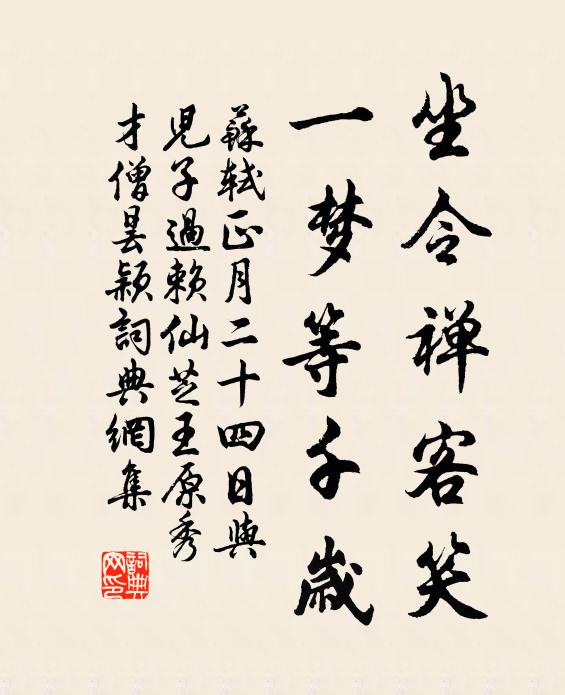 坐令禅客笑
一梦等千歳
蘇軾正月二十四日與
児子過賴仙芝王原秀
才僧曇穎詞典網集
詞典
网印